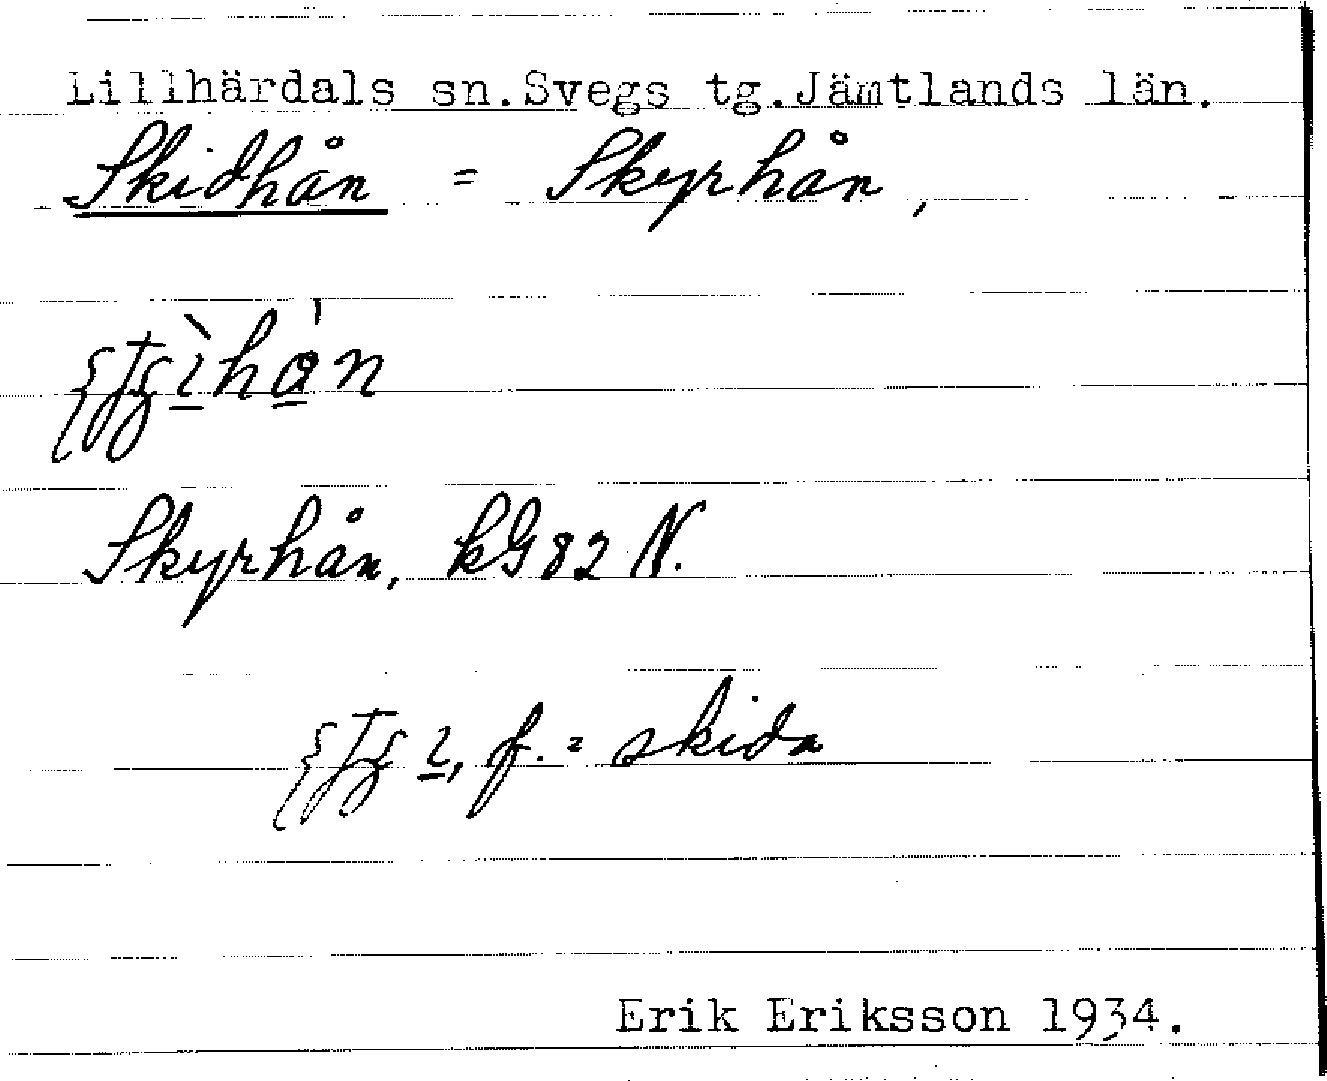 Lillhärdals sn. Svegs tg. Jämtlands län.
Skidhån = Skyrhån,
Skyrhån, kG 82 N.
f. = skida
Erik Eriksson 1934.